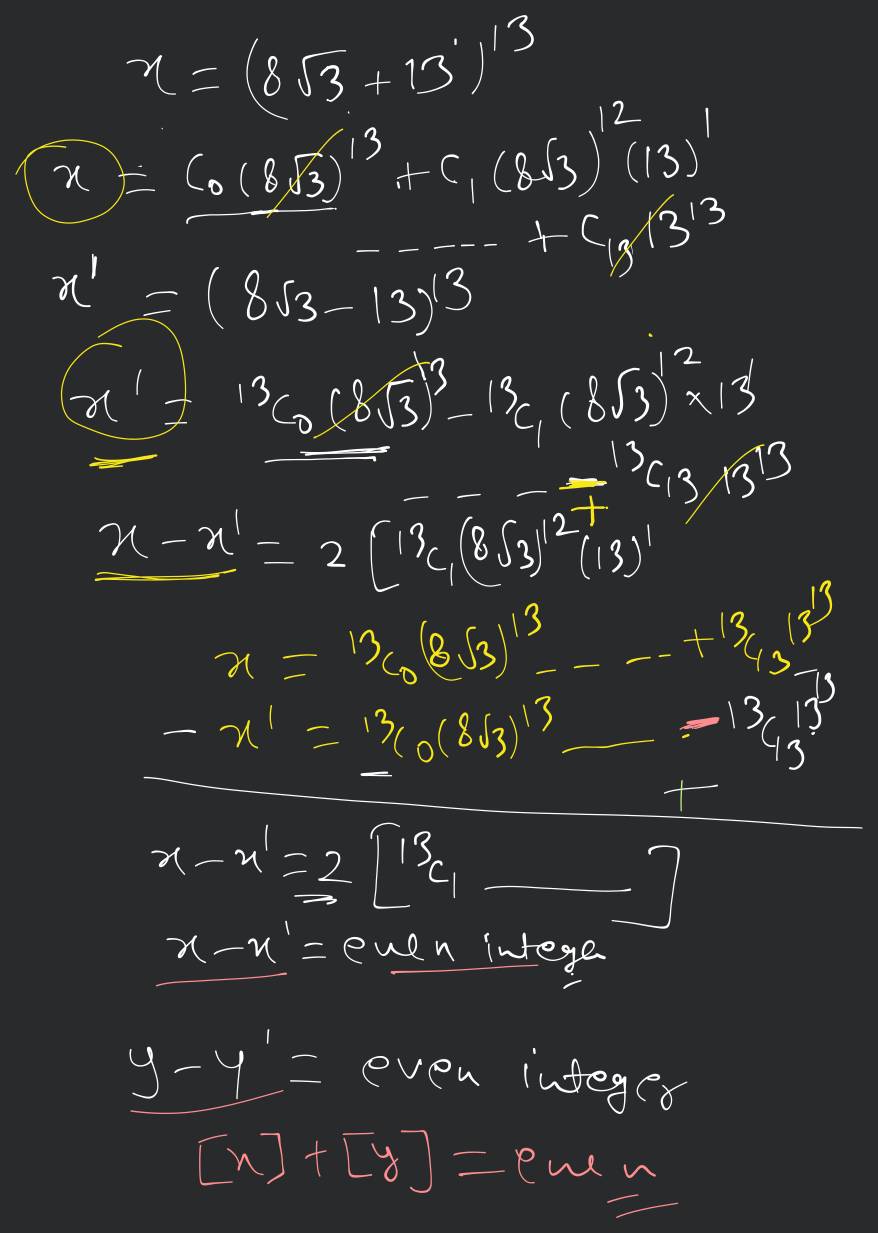 x = (8√3 + 13)^13
x = C₀(8√3)^13 + C₁(8√3)^12 (13)^1
----- + C₁₃ 13^13
x' = (8√3 - 13)^13
x' = ¹³C₀(8√3)^13 - ¹³C₁(8√3)^12 × 13^1
--- - ¹³C₁₃ 13^13
+
x - x' = 2[¹³C₁(8√3)^12 (13)^1
x = ¹³C₀(8√3)^13 ---- + ¹³C₁₃ 13^13
- x' = ¹³C₀(8√3)^13 —— - ¹³C₁₃ 13^13
+
x - x' = 2[¹³C₁ ——— ]
x - x' = even intege
y - y' = even integer
[x] + [y] = even